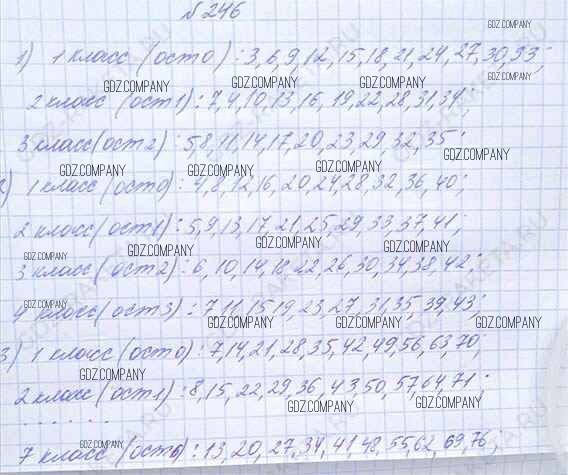 № 246
1) 1 класс (ост 0) : 3, 6, 9, 12, 15, 18, 21, 24, 27, 30, 33;
2 класс (ост 1) : 7, 4, 10, 13, 16, 19, 22, 28, 31, 34;
3 класс (ост 2) : 5, 8, 11, 14, 17, 20, 23, 29, 32, 35;
2) 1 класс (ост 0) : 4, 8, 12, 16, 20, 24, 28, 32, 36, 40;
2 класс (ост 1) : 5, 9, 13, 17, 21, 25, 29, 33, 37, 41;
3 класс (ост 2) : 6, 10, 14, 18, 22, 26, 30, 34, 38, 42;
4 класс (ост 3) : 7, 11, 15, 19, 23, 27, 31, 35, 39, 43;
3) 1 класс (ост 0) : 7, 14, 21, 28, 35, 42, 49, 56, 63, 70;
2 класс (ост 1) : 8, 15, 22, 29, 36, 43, 50, 57, 64, 71;
. . . . . . .
7 класс (ост 6) : 13, 20, 27, 34, 41, 48, 55, 62, 69, 76;